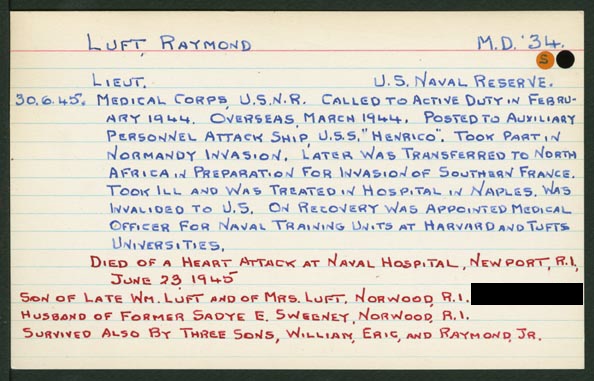 LUFT, RAYMOND M.D. '34.
S
LIEUT. U.S. NAVAL RESERVE.
30.6.45. MEDICAL CORPS, U.S.N.R. CALLED TO ACTIVE DUTY IN FEBRU-
ARY 1944. OVERSEAS, MARCH 1944. POSTED TO AUXILIARY
PERSONNEL ATTACK SHIP, U.S.S. "HENRICO". TOOK PART IN
NORMANDY INVASION. LATER WAS TRANSFERRED TO NORTH
AFRICA IN PREPARATION FOR INVASION OF SOUTHERN FRANCE.
TOOK ILL AND WAS TREATED IN HOSPITAL IN NAPLES. WAS
INVALIDED TO U.S. ON RECOVERY WAS APPOINTED MEDICAL
OFFICER FOR NAVAL TRAINING UNITS AT HARVARD AND TUFTS
UNIVERSITIES.
DIED OF A HEART ATTACK AT NAVAL HOSPITAL, NEWPORT, R.I,
JUNE 23 1945
SON OF LATE WM. LUFT AND OF MRS. LUFT, NORWOOD, R.I.
HUSBAND OF FORMER SADYE E. SWEENEY, NORWOOD, R.I.
SURVIVED ALSO BY THREE SONS, WILLIAM, ERIC, AND RAYMOND, JR.